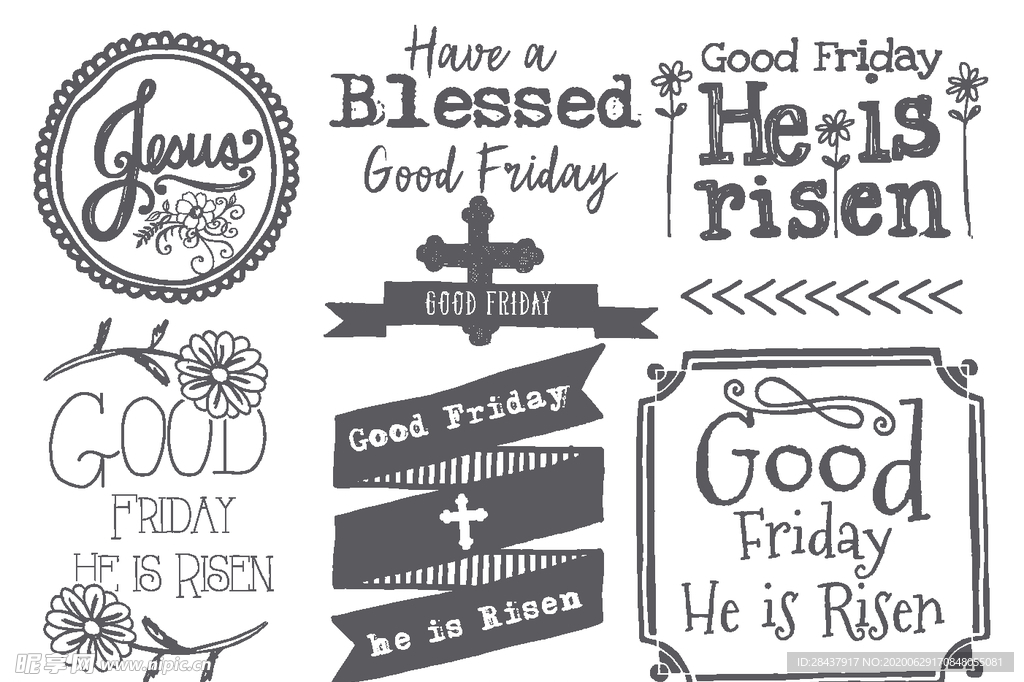 Jesus
Have a
Blessed
Good Friday
GOOD FRIDAY
Good Friday
He is
risen
GOOD
FRIDAY
HE IS RISEN
Good Friday
he is Risen
Good
Friday
He is Risen
昵享网 www.nipic.cn
ID:28437917 NO:20200629170848055081